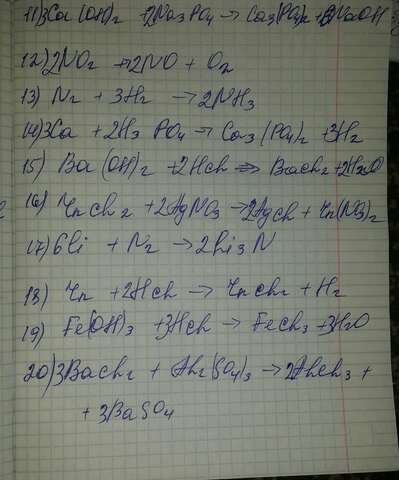 11) 3Ca(OH)₂ + 2Na₃PO₄ → Ca₃(PO₄)₂ + 6NaOH
12) 2NO₂ → 2NO + O₂
13) N₂ + 3H₂ → 2NH₃
14) 3Ca + 2H₃PO₄ → Ca₃(PO₄)₂ + 3H₂
15) Ba(OH)₂ + 2HCl → BaCl₂ + 2H₂O
16) ZnCl₂ + 2AgNO₃ → 2AgCl + Zn(NO₃)₂
17) 6Li + N₂ → 2Li₃N
18) Zn + 2HCl → ZnCl₂ + H₂
19) Fe(OH)₃ + 3HCl → FeCl₃ + 3H₂O
20) 3BaCl₂ + Al₂(SO₄)₃ → 2AlCl₃ +
+ 3BaSO₄